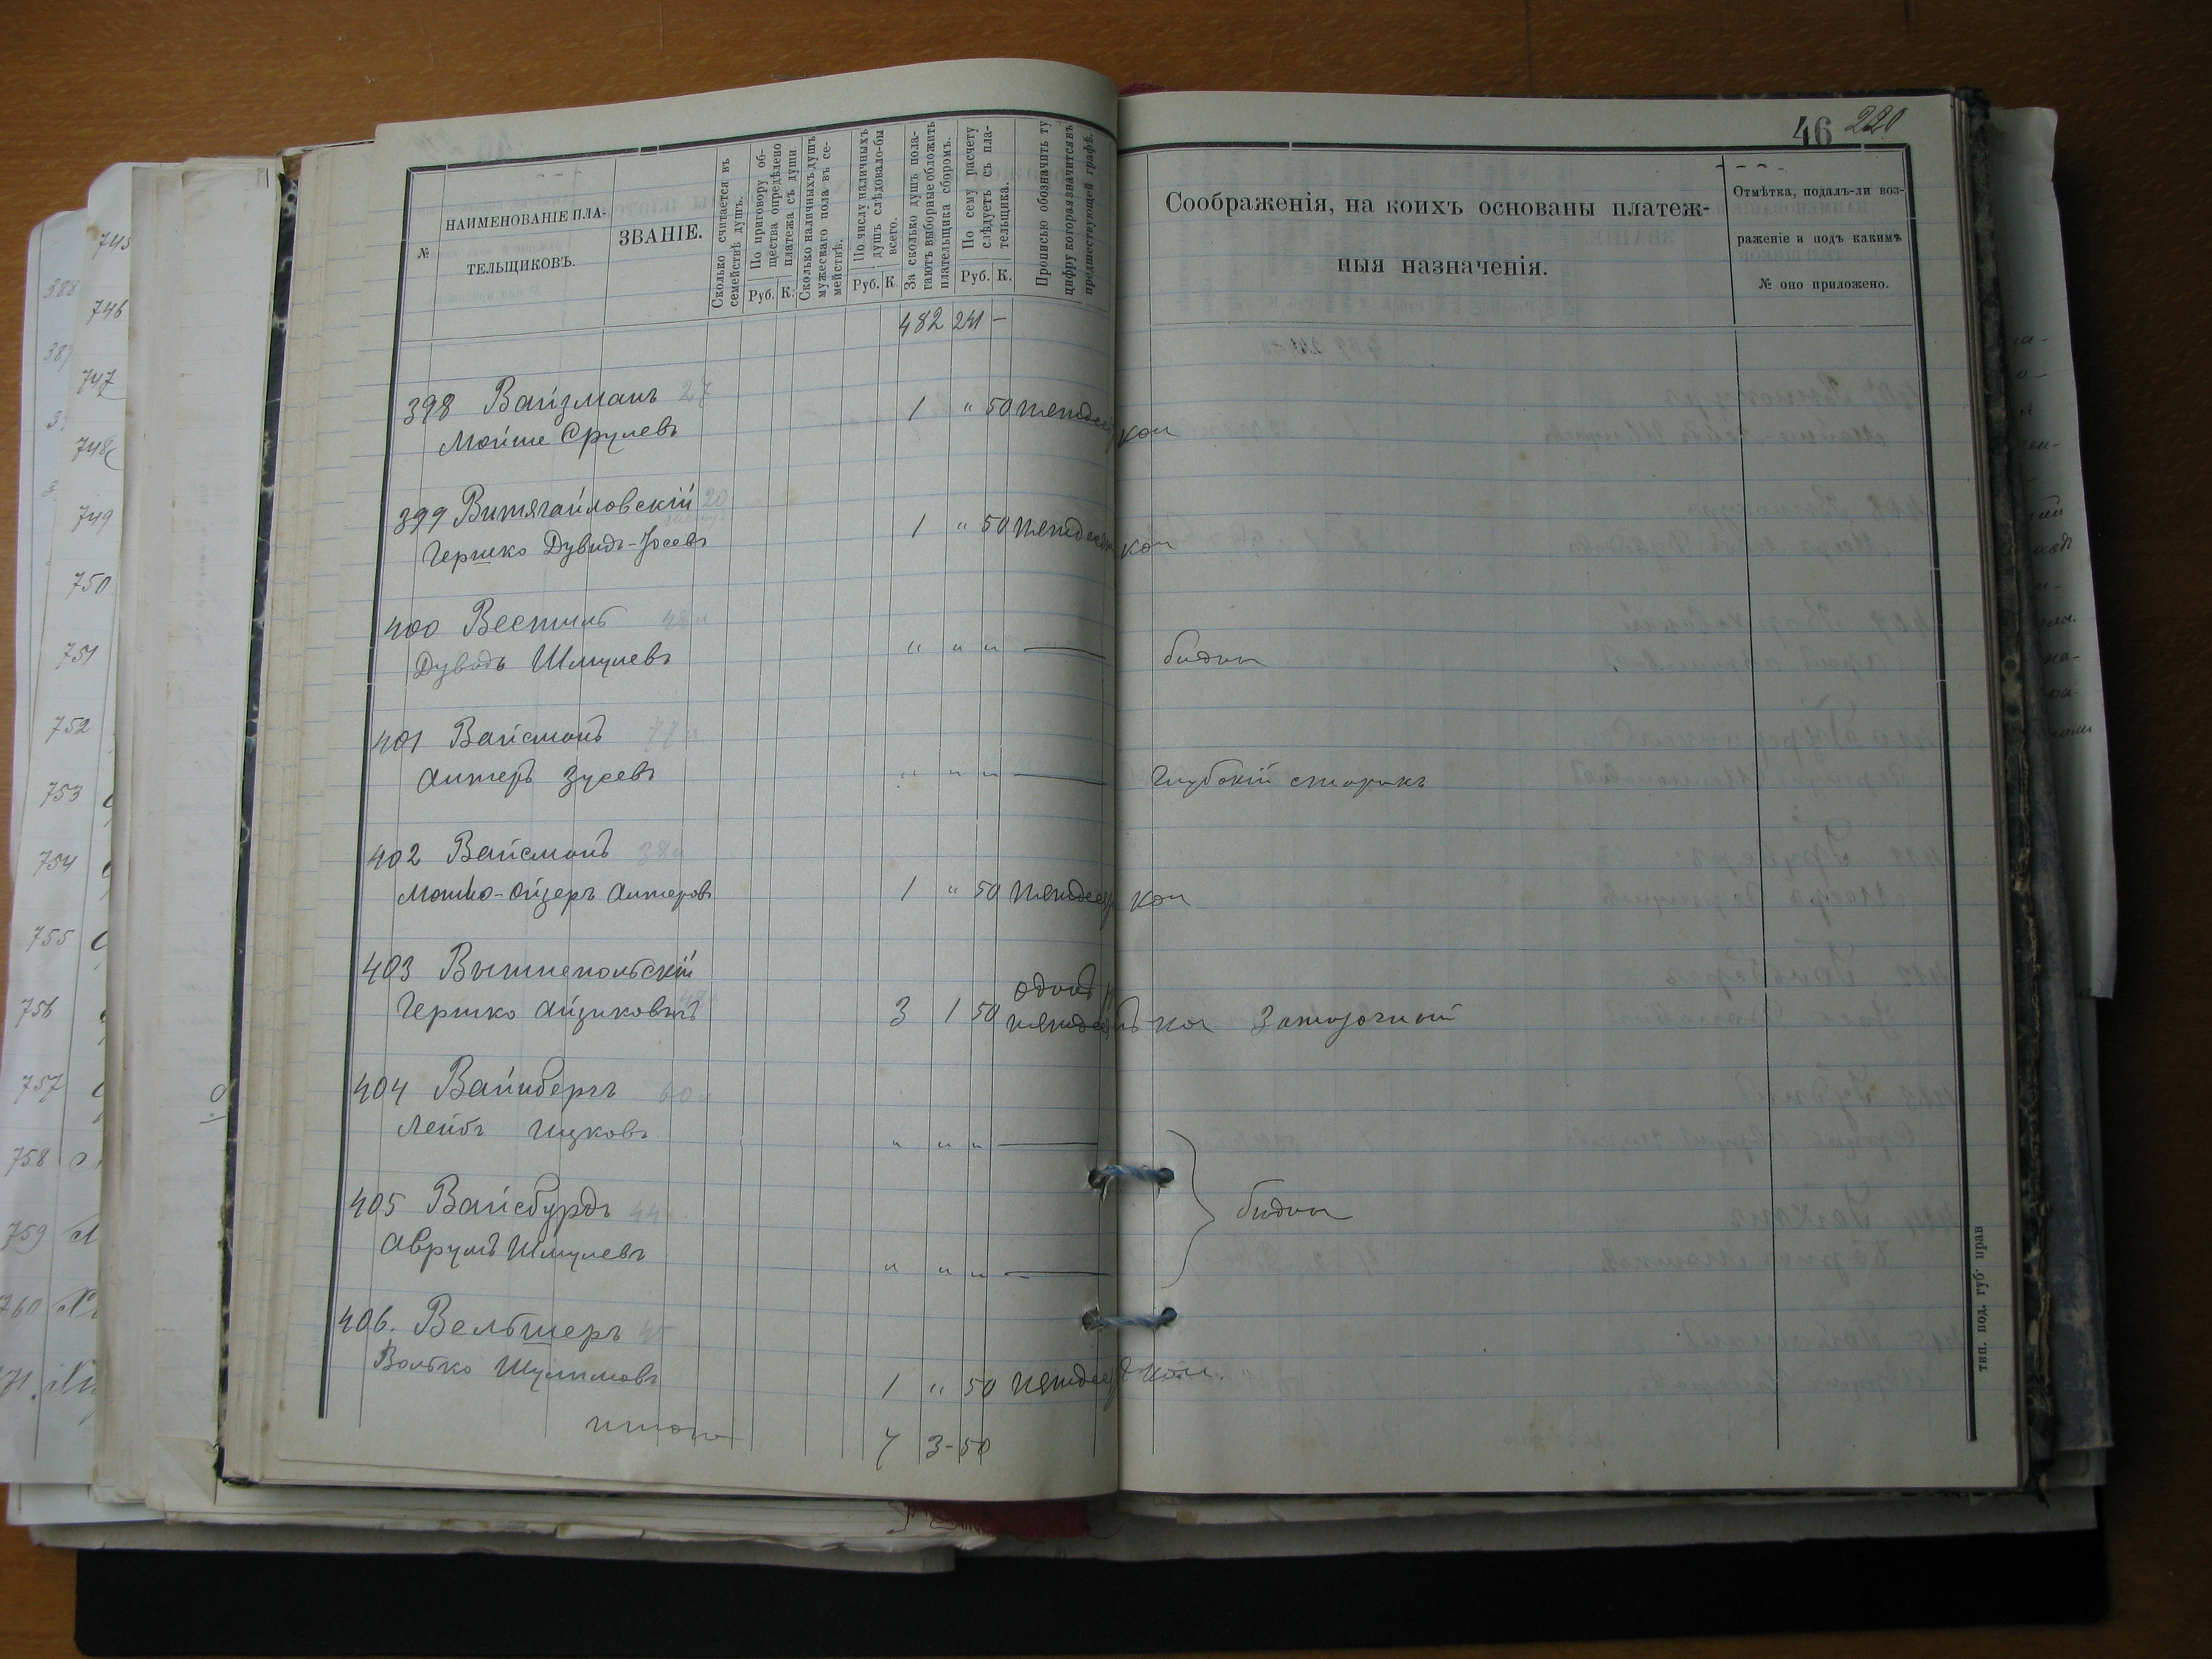 46 220
№
НАИМЕНОВАНІЕ ПЛА-
ТЕЛЬЩИКОВЪ.
ЗВАНІЕ.
Сколько считается въ
семействѣ душъ.
По приговору об-
щества опредѣлено
платежа съ души
Руб. К.
Сколько наличныхъ душъ
мужескаго пола въ се-
мействѣ.
По числу наличныхъ
душъ слѣдовало-бы
всего.
Руб. К
За сколько душъ пола-
гаютъ выборные обложить
плательщика сборомъ.
По сему расчету
слѣдуетъ съ пла-
тельщика.
Руб. К.
Прописью обозначить ту
цифру которая значится въ
предшествующей графѣ.
Соображенія, на коихъ основаны платеж-
ныя назначенія.
Отмѣтка, подалъ-ли воз-
раженіе и подъ какимъ
№ оно приложено.
482 241 -
398 Вайзманъ 27
Мойше Срулевъ 1 " 50 пятьдесят коп
399 Витягайловскій 20
Гершко Дувидъ-Іосевъ 1 " 50 пятьдесят коп
400 48
Дувидъ Шмулевъ " " " —
401 Вайсманъ 77
Алтеръ Зусевъ " " " — Глубокій старикъ
402 Вайсманъ 38
Мошко-Ойзеръ Алтеровъ 1 " 50 пятьдесят коп
403 Вышнепольскій
Гершко Айзиковъ 3 1 50 один р
пятьдесят коп Зажиточный
404 Вайнбергъ 60
Лейбъ Ицковъ " " " —
405 Вайсбурдъ 44
Аврумъ Шмулевъ " " " —
406. Вельтшеръ 45
Волько Шулимовъ 1 " 50 пятьдесят коп.
итого 7 3-50
тип. под. губ. прав
745
746
747
748
749
750
751
752
753
754
755
756
757
758
759
760